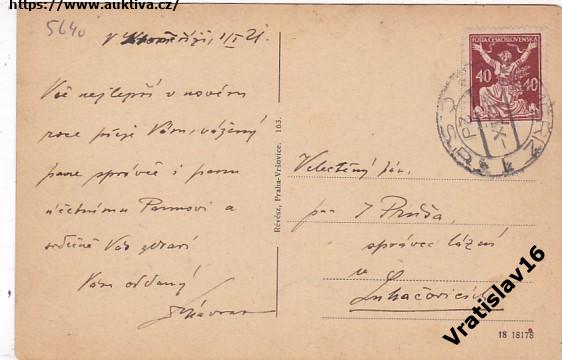 https://www.auktiva.cz/
5640
V Kroměříži, 1/I 21.
Vše nejlepší v novém
roce přeje Vám, vážený
pane správče i panu
účetnímu a
srdečně Vás zdraví
Vám oddaný
Révész, Praha-Vršovice. 163.
POŠTA ČESKOSLOVENSKÁ
40 40
Velectěný pán,
pan J Průša,
správce lázní
v
Luhačovicích
Vratislav16
18 18178